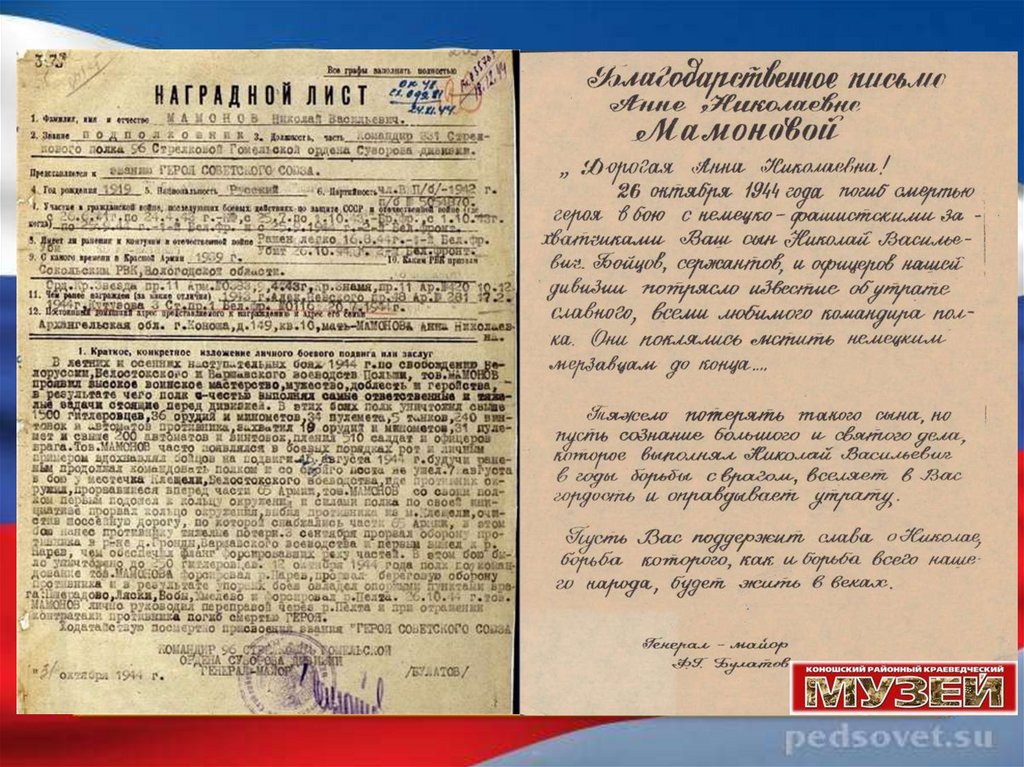 Все графы заполнять полностью
НАГРАДНОЙ ЛИСТ
1. Фамилия, имя и отчество МАМОНОВ Николай Васильевич.
2. Звание ПОДПОЛКОВНИК 3. Должность, часть Командир 331 Стрел-
кового полка 96 Стрелковой Гомельской ордена Суворова дивизии.
Представляется к званию ГЕРОЯ СОВЕТСКОГО СОЮЗА.
4. Год рождения 1919 5. Национальность Русский 6. Партийность чл.ВП/б/-1942 г.
6. Участие в гражданской войне, последующих боевых действиях по защите СССР и отечественной войне
8. Имеет ли ранения и контузии в отечественной войне Ранен легко 16.8.44г.-1-й Бел.фр.
9. С какого времени в Красной Армии 1939 г. 10. Каким РВК призван
Сокольским РВК, Вологодской области.
11. Чем ранее награжден (за какие отличия)
12. Постоянный домашний адрес представляемого к награждению и адрес его семьи
Архангельская обл. г.Коноша, д.149, кв.10, мать-МАМОНОВА Анна Николаев-
на.
1. Краткое, конкретное изложение личного боевого подвига или заслуг
В летних и осенних наступательных боях 1944 г.по свободжению Бе-
лоруссии, Белостокского и Варшавского воеводств Польши, тов.МАМОНОВ
проявил высокое воинское мастерство, мужество, доблесть и геройства,
в результате чего полк с честью выполнял самые ответственные и тяже-
лые задачи стоящие перед дивизией. В этих боях полк уничтожил свыше
1500 гитлеровцев, 36 орудий и минометов, 34 пулемета, 5 танков, 240 вин-
товок и автоматов противника, захватил 18 орудий и минометов, 31 пуле-
мет и свыше 200 автоматов и винтовок, пленил 510 солдат и офицеров
врага. Тов.МАМОНОВ часто появлялся в боевых порядках рот и личным
примером вдохновлял бойцов на подвиги. 16 августа 1944 г. будучи ране-
ным продолжал командовать полком и со своего поста не ушел. 7 августа
в бою у местечка Клещели, Белостокского воеводства, где противник ок-
ружил, прорвавшиеся вперед части 65 Армии, тов.МАМОНОВ со своим пол-
ком первым подошел к кольцу окружения и силами полка по своей ини-
циативе прорвал кольцо окружения, выбил противника из м.Клещели, очи-
стив шоссейную дорогу, по которой снабжались части 65 Армии, в этом
бою нанес противнику тяжелые потери. 3 сентября прорвал оборону про-
тивника в р-не д.Гронди, Варшавского воеводства и первым вышел к р.
Нарев, чем обеспечил фланг форсировавших реку частей. В этом бою бы-
ло уничтожено до 250 гитлеровцев. 12 октября 1944 года полк под коман-
дование тов.МАМОНОВА форсировал р.Нарев, прорвал береговую оборону
противника и в результате упорных боев овладел опорными пунктами вра-
га: и форсировал р.Пелта. 26.10.44 г.тов.
МАМОНОВ лично руководил переправой через р.Пелта и при отражении
контратаки противника погиб смертью ГЕРОЯ.
Ходатайствую посмертно присвоения звания "ГЕРОЯ СОВЕТСКОГО СОЮЗА
КОМАНДИР 96 СТРЕЛКОВОЙ ГОМЕЛЬСКОЙ
ОРДЕНА СУВОРОВА ДИВИЗИИ
ГЕНЕРАЛ-МАЙОР /БУЛАТОВ/
"31 октября 1944 г.
Благодарственное письмо
Анне Николаевне
Мамоновой
„Дорогая Анна Николаевна!
26 октября 1944 года погиб смертью
героя в бою с немецко-фашистскими за-
хватчиками Ваш сын Николай Василье-
вич. Бойцов, сержантов, и офицеров нашей
дивизии потрясло известие об утрате
славного, всеми любимого командира пол-
ка. Они поклялись мстить немецким
мерзавцам до конца....
Тяжело потерять такого сына, но
пусть сознание большого и святого дела,
которое выполнял Николай Васильевич
в годы борьбы с врагом, вселяет в Вас
гордость и оправдывает утрату.
Пусть Вас поддержит слава о Николае,
борьба которого, как и борьба всего наше-
го народа, будет жить в веках.
Генерал-майор
Ф.Г. Булатов
КОНОШСКИЙ РАЙОННЫЙ КРАЕВЕДЧЕСКИЙ
МУЗЕЙ
pedsovet.su